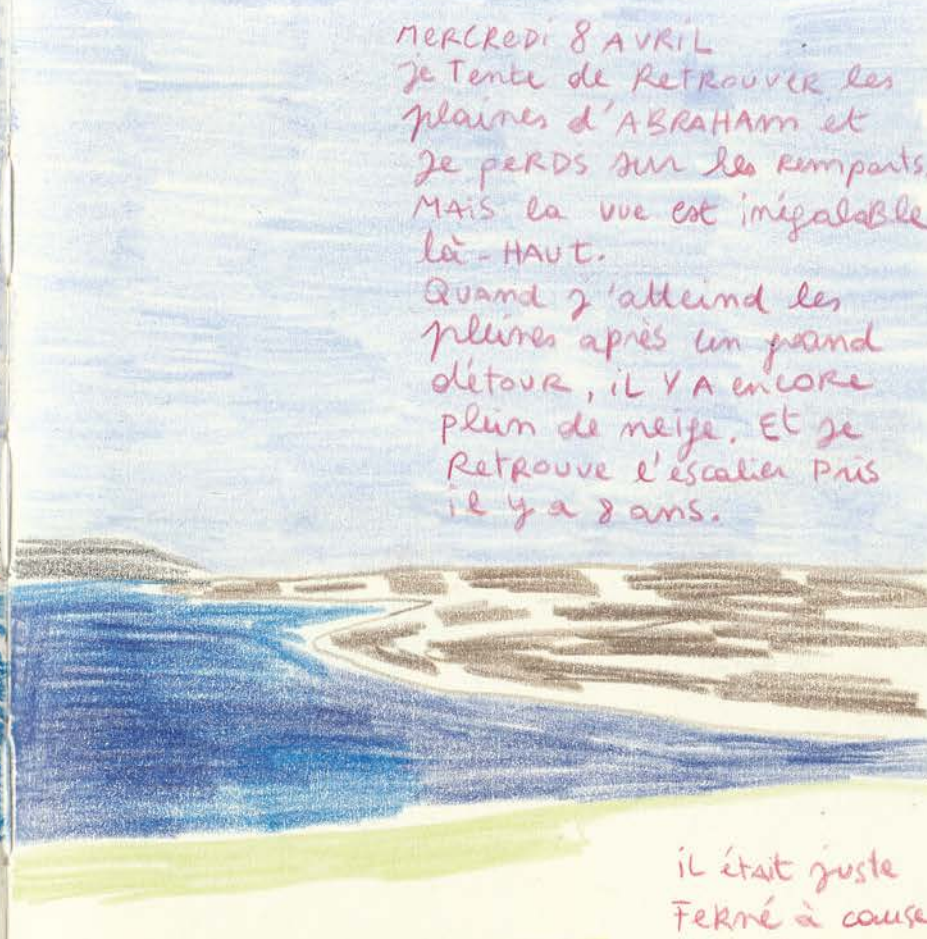 MERCREDI 8 AVRIL
je Tente de RETROUVER les
plaines d'ABRAHAM et
je PERDS sur les Remparts.
MAIS la vue est inégalable
là-HAUT.
QUAND j'atteind les
pleines après un grand
détour, iL Y A encore
plein de neige. Et je
Retrouve l'escalier Pris
il y a 8 ans.
iL était juste
Fermé à cause